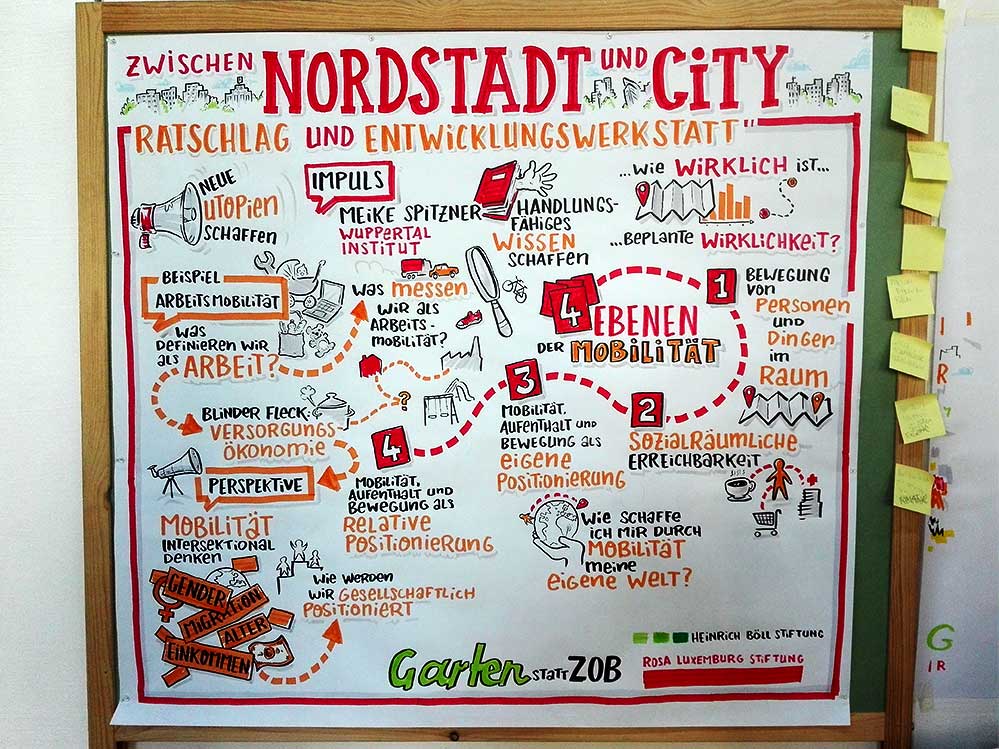 ZWISCHEN NORDSTADT UND CITY
RATSCHLAG UND ENTWICKLUNGSWERKSTATT"
NEUE
UTOPIEN
SCHAFFEN
IMPULS
MEIKE SPITZNER
WUPPERTAL
INSTITUT
HANDLUNGS-
FÄHIGES
WISSEN
SCHAFFEN
...WIE WIRKLICH IST...
...BEPLANTE WIRKLICHKEIT?
BEISPIEL
ARBEITSMOBILITÄT
WAS
DEFINIEREN WIR
ALS ARBEIT?
WAS MESSEN
WIR ALS
ARBEITS-
MOBILITÄT?
BLINDER FLECK:
VERSORGUNGS-
ÖKONOMIE
?
4 EBENEN
DER MOBILITÄT
1
BEWEGUNG
VON
PERSONEN
UND
DINGEN
IM
RAUM
2
SOZIALRÄUMLICHE
ERREICHBARKEIT
3
MOBILITÄT,
AUFENTHALT UND
BEWEGUNG ALS
EIGENE
POSITIONIERUNG
WIE SCHAFFE
ICH MIR DURCH
MOBILITÄT
MEINE
EIGENE WELT?
4
MOBILITÄT,
AUFENTHALT UND
BEWEGUNG ALS
RELATIVE
POSITIONIERUNG
PERSPEKTIVE
MOBILITÄT
INTERSEKTIONAL
DENKEN
GENDER
MIGRATION
ALTER
EINKOMMEN
WIE WERDEN
WIR GESELLSCHAFTLICH
POSITIONIERT
Garten STATT ZOB
HEINRICH BÖLL STIFTUNG
ROSA LUXEMBURG STIFTUNG